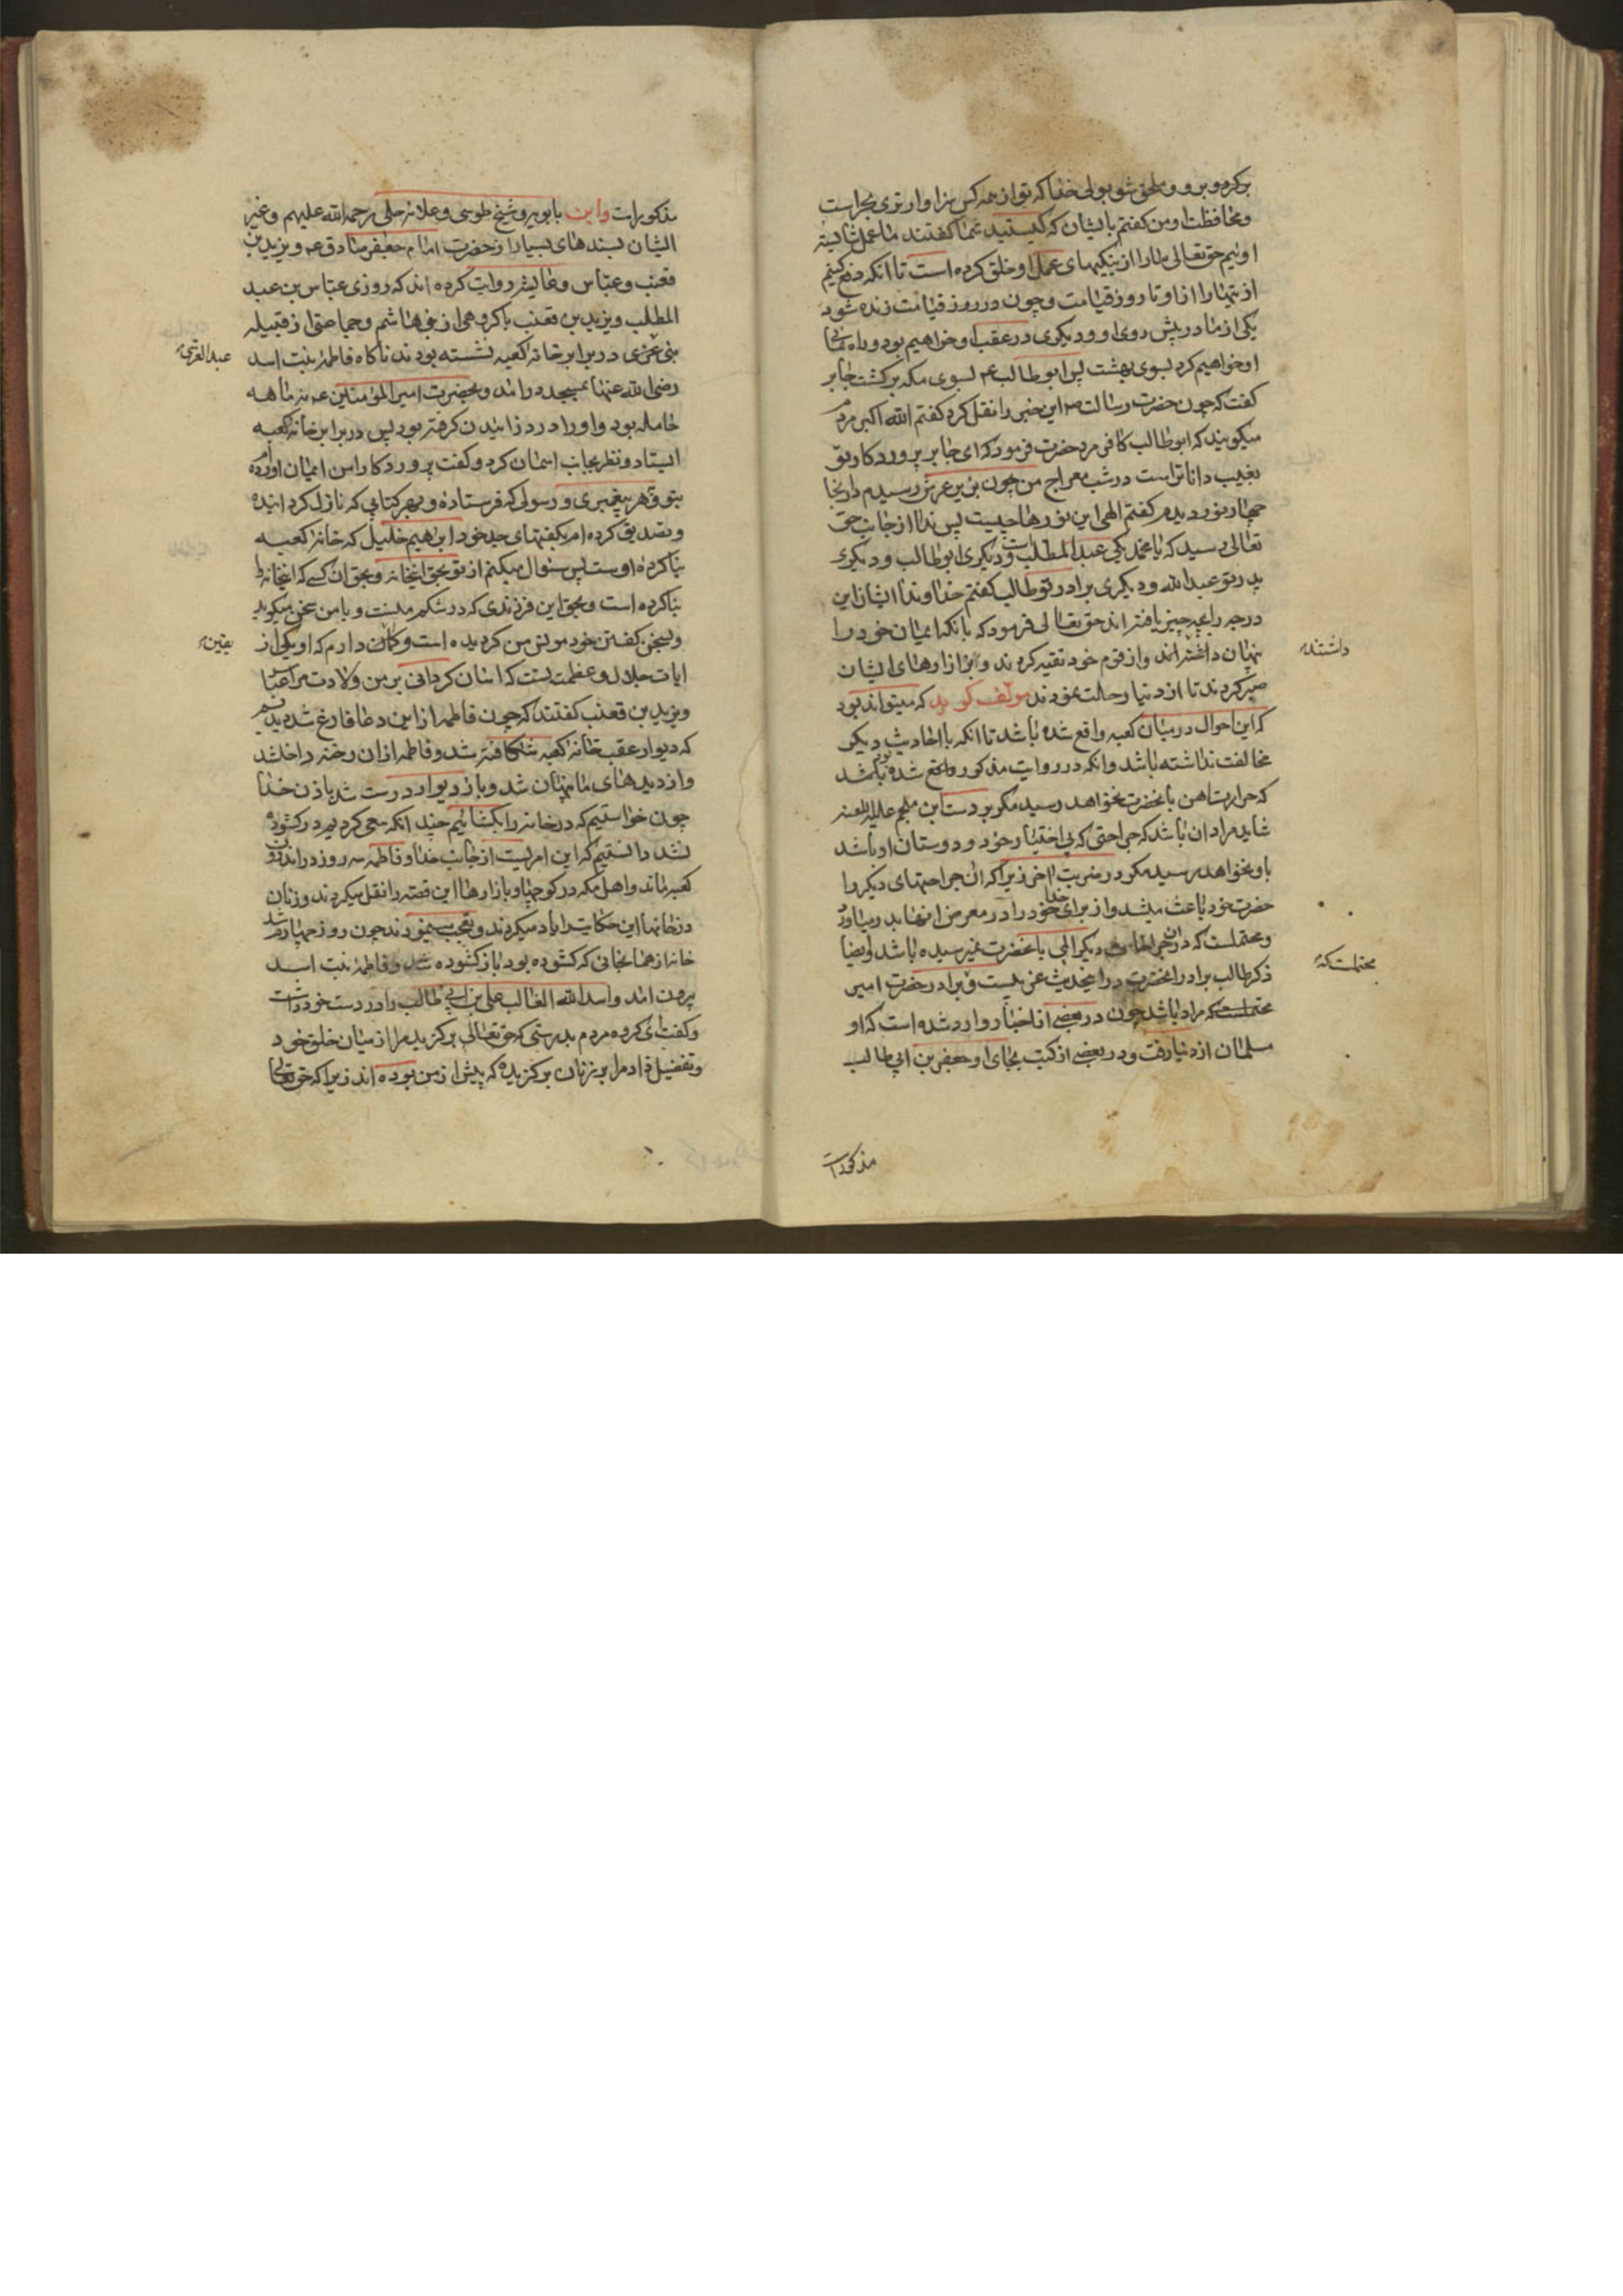 برگرد و برو و ملحق شو بولی خدا که تو از همه کس سزاوارتری بحراست
و محافظت او من گفتم بایشان که کیستید شما گفتند ما عمل شایسته
اوئیم حق تعالی ما را از نیکیهای عمل او خلق کرده است تا آنکه دفع کنیم
از او تا روز قیامت و چون در روز قیامت زنده شود
یکی از ما در پیش روی او و دیگری در عقب او خواهیم بود و راه نمائی
او خواهیم کرد بسوی بهشت پس ابو طالب ع بسوی مکه برگشت جابر
گفت که چون حضرت رسالت ص این خبر را نقل کرد گفتم الله اکبر مردم
میگویند که ابو طالب کافر مرد حضرت فرمود که ای جابر پروردگار تو
بغیب داناتر است در شب معراج من چون بزیر عرش رسیدم در انجا
چهار نور دیدم گفتم الهی این نورها چیست پس ندا از جانب حق
تعالی رسید که یا محمد یکی عبد المطلب است و دیگری ابو طالب و دیگری
پدر تو عبد الله و دیگری برادر تو طالب گفتم خداوندا ایشان این
درجه را بچه چیز یافته اند حق تعالی فرمود که بانکه ایمان خود را
پنهان داشته اند و از قوم خود تقیه کردند و بر ازارهای ایشان
داشتند
صبر کردند تا از دنیا رحلت نمودند مولف گوید که میتواند بود
که این احوال در میان کعبه واقع شده باشد تا انکه با احادیث دیگر
مخالفت نداشته باشد و انکه در روایت مذکور واقع شده بود
که حرارت اهن بانحضرت نخواهد رسید مگر بر دست ابن ملجم علیه اللعنه
شاید مراد ان باشد که جراحتی که بی اختیار خود و دوستان او باشد
باو نخواهد رسید مگر در ضربت اخر زیرا که ان جراحتهای دیگر را
حضرت خود باعث میشد و از برای خدا خود را در معرض انها بدر میاورد
و محتملست که در ان جراحات دیگر المی بانحضرت نمیرسیده باشد و ایضا
ذکر طالب برادر انحضرت در این حدیث غریبست و برادر حضرت امیر
محتملست که
محتملست که مراد باشد چون در بعضی از اخبار وارد شده است که او
مسلمان از دنیا رفت و در بعضی از کتب بجای او جعفر بن ابی طالب
مذکورات
مذکورات و ابن بابویه و شیخ طوسی و علامه حلی رحمه الله علیهم و غیر
ایشان بسندهای بسیار از حضرت امام جعفر صادق ع و یزید بن
قعنب و عباس و عایشه روایت کرده اند که روزی عباس بن عبد
المطلب و یزید بن قعنب با گروهی از بنی هاشم و جماعتی از قبیله
بنی عزی در برابر خانه کعبه نشسته بودند ناگاه فاطمه بنت اسد
عبد العزی
رضی الله عنها بمسجد در آمد و بحضرت امیر المؤمنین ع نه ماهه
حامله بود و او را درد زائیدن گرفته بود پس در برابر خانه کعبه
ایستاد و نظر بجانب اسمان کرد و گفت پروردگارا من ایمان آورده ام
بتو و بهر پیغمبری و رسولی که فرستاده و بهر کتابی که نازل گردانیده
و تصدیق کرده ام بگفتهای جد خود ابراهیم خلیل که خانه کعبه
بنا کرده اوست پس سئوال میکنم از تو بحق اینخانه و بحق ان کسی که اینخانه را
بنا کرده است و بحق این فرزندی که در شکم منست و با من سخن میگوید
و بسخن گفتن خود مونس من گردیده است و گمان دارم که او یکی از
یقین
ایات جلال و عظمت تست که اسان گردانی بر من ولادت مرا عباس
و یزید بن قعنب گفتند که چون فاطمه از این دعا فارغ شد دیدیم
که دیوار عقب خانه کعبه شکافته شد و فاطمه از ان رخنه داخل شد
و از دیدهای ما پنهان شد و باز دیوار درست شد باذن خدا
چون خواستیم که در خانه را بگشائیم چند انکه سعی کردیم در گشوده
نشد دانستیم که این امریست از جانب خدا و فاطمه سه روز در اندرون
کعبه ماند و اهل مکه در کوچها و بازارها این قصه را نقل میکردند و زنان
در خانها این حکایت را یاد میکردند و تعجب مینمودند چون روز چهارم شد
خانه از همانجائی که گشوده بود باز گشوده شد و فاطمه بنت اسد
بیرون امد و اسد الله الغالب علی بن ابی طالب را در دست خود داشت
و گفت ای گروه مردم بدرستی که حق تعالی برگزید مرا از میان خلق خود
و تفضیل داد مرا بر زنان برگزیده که پیش از من بوده اند زیرا که حق تعالی